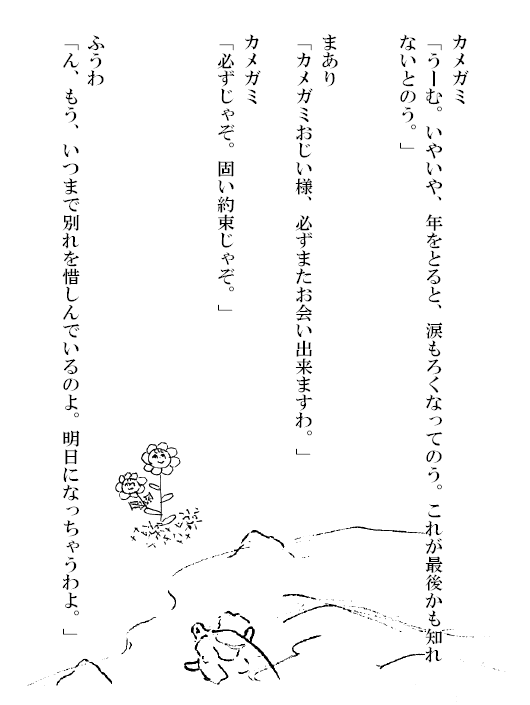 カメガミ
「うーむ。いやいや、年をとると、涙もろくなってのう。これが最後かも知れ
ないとのう。」
まあり
「カメガミおじい様、必ずまたお会い出来ますわ。」
カメガミ
「必ずじゃぞ。固い約束じゃぞ。」
ふうわ
「ん、もう、いつまで別れを惜しんでいるのよ。明日になっちゃうわよ。」